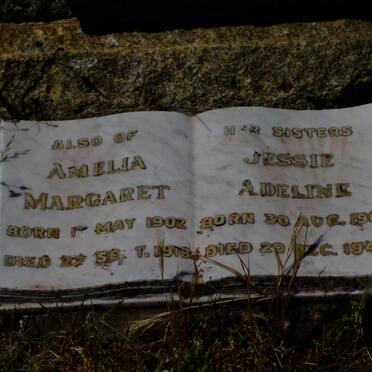 ALSO OF
AMELIA
MARGARET
BORN 1st MAY 1902
DIED 27 SEPT. 1918
HER SISTERS
JESSIE
ADELINE
BORN 30 AUG.
DIED 29 DEC.